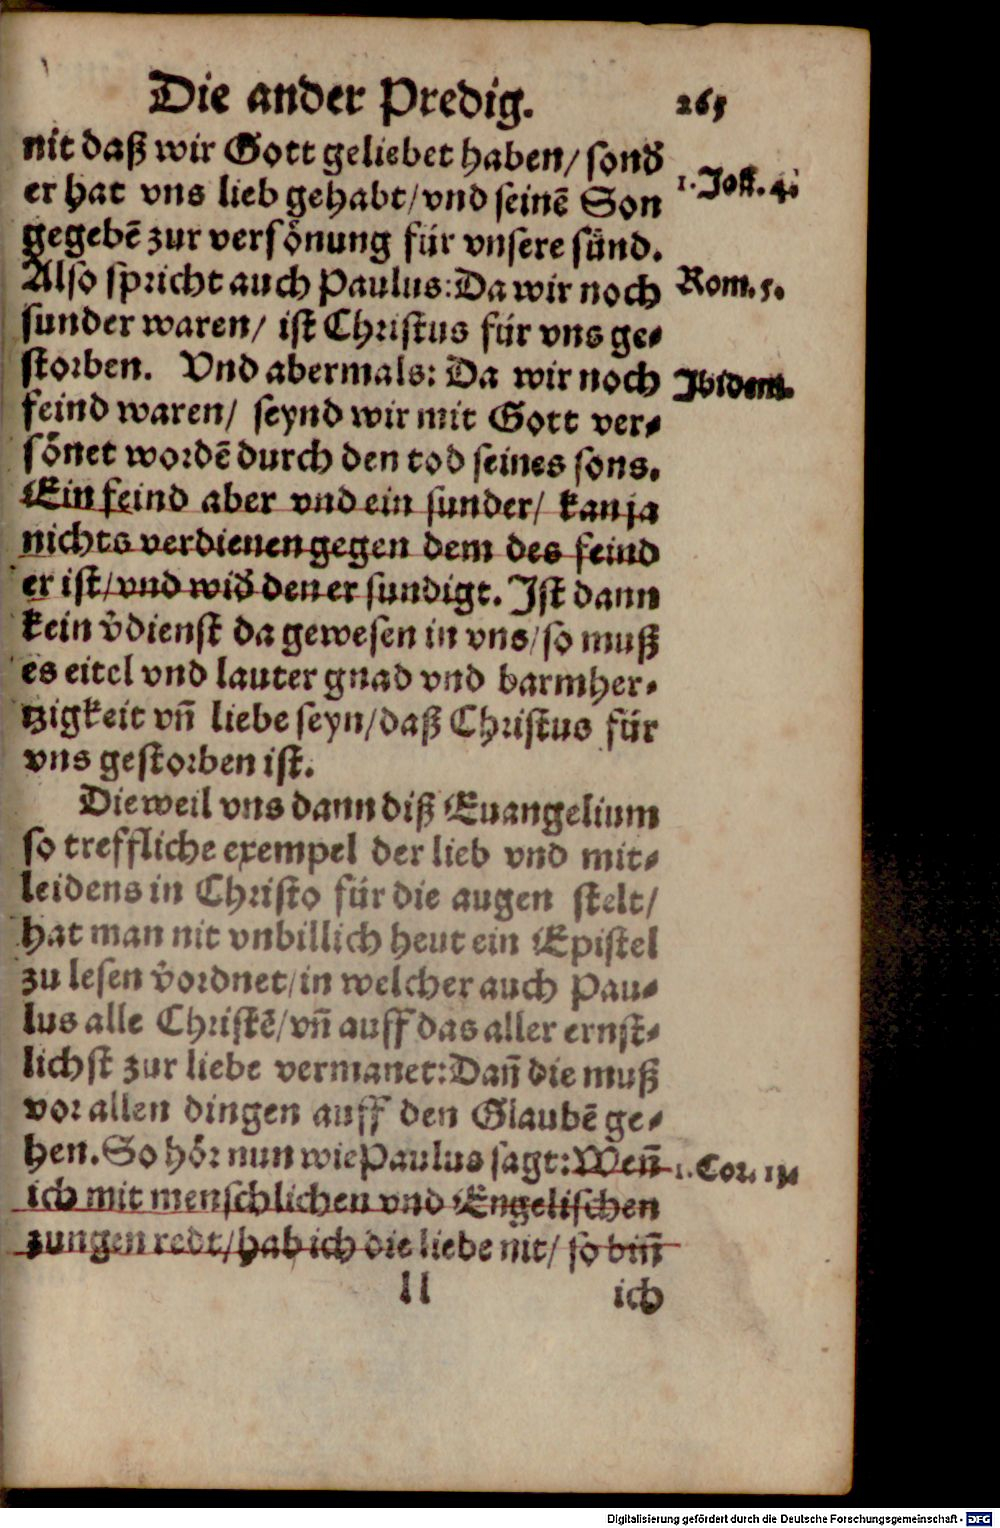 Die ander Predig. 265
nit daß wir Gott geliebet haben/ sond̄
er hat vns lieb gehabt/vnd seinē Son
gegebē zur versönung für vnsere sünd.
Also spricht auch Paulus: Da wir noch
sunder waren/ ist Christus für vns ge-
storben. Vnd abermals: Da wir noch
feind waren/ seynd wir mit Gott ver-
sönet wordē durch den tod seines sons.
Ein feind aber vnd ein sunder/ kan ja
nichts verdienen gegen dem des feind
er ist/vnd wid̄ den er sundigt. Ist dann
kein v̄dienst da gewesen in vns/so muß
es eitel vnd lauter gnad vnd barmher-
tzigkeit vñ liebe seyn/daß Christus für
vns gestorben ist.
Dieweil vns dann diß Euangelium
so treffliche exempel der lieb vnd mit-
leidens in Christo für die augen stelt/
hat man nit vnbillich heut ein Epistel
zu lesen v̄ordnet/in welcher auch Pau-
lus alle Christē/vñ auff das aller ernst-
lichst zur liebe vermanet: Dañ die muß
vor allen dingen auff den Glaubē ge-
hen. So hör nun wie Paulus sagt: Weñ
ich mit menschlichen vnd Engelischen
zungen redt/hab ich die liebe nit/ so biñ
Ll ich
1. Joh. 4.
Rom. 5.
Ibidem.
1. Cor. 13.
Digitalisierung gefördert durch die Deutsche Forschungsgemeinschaft - DFG